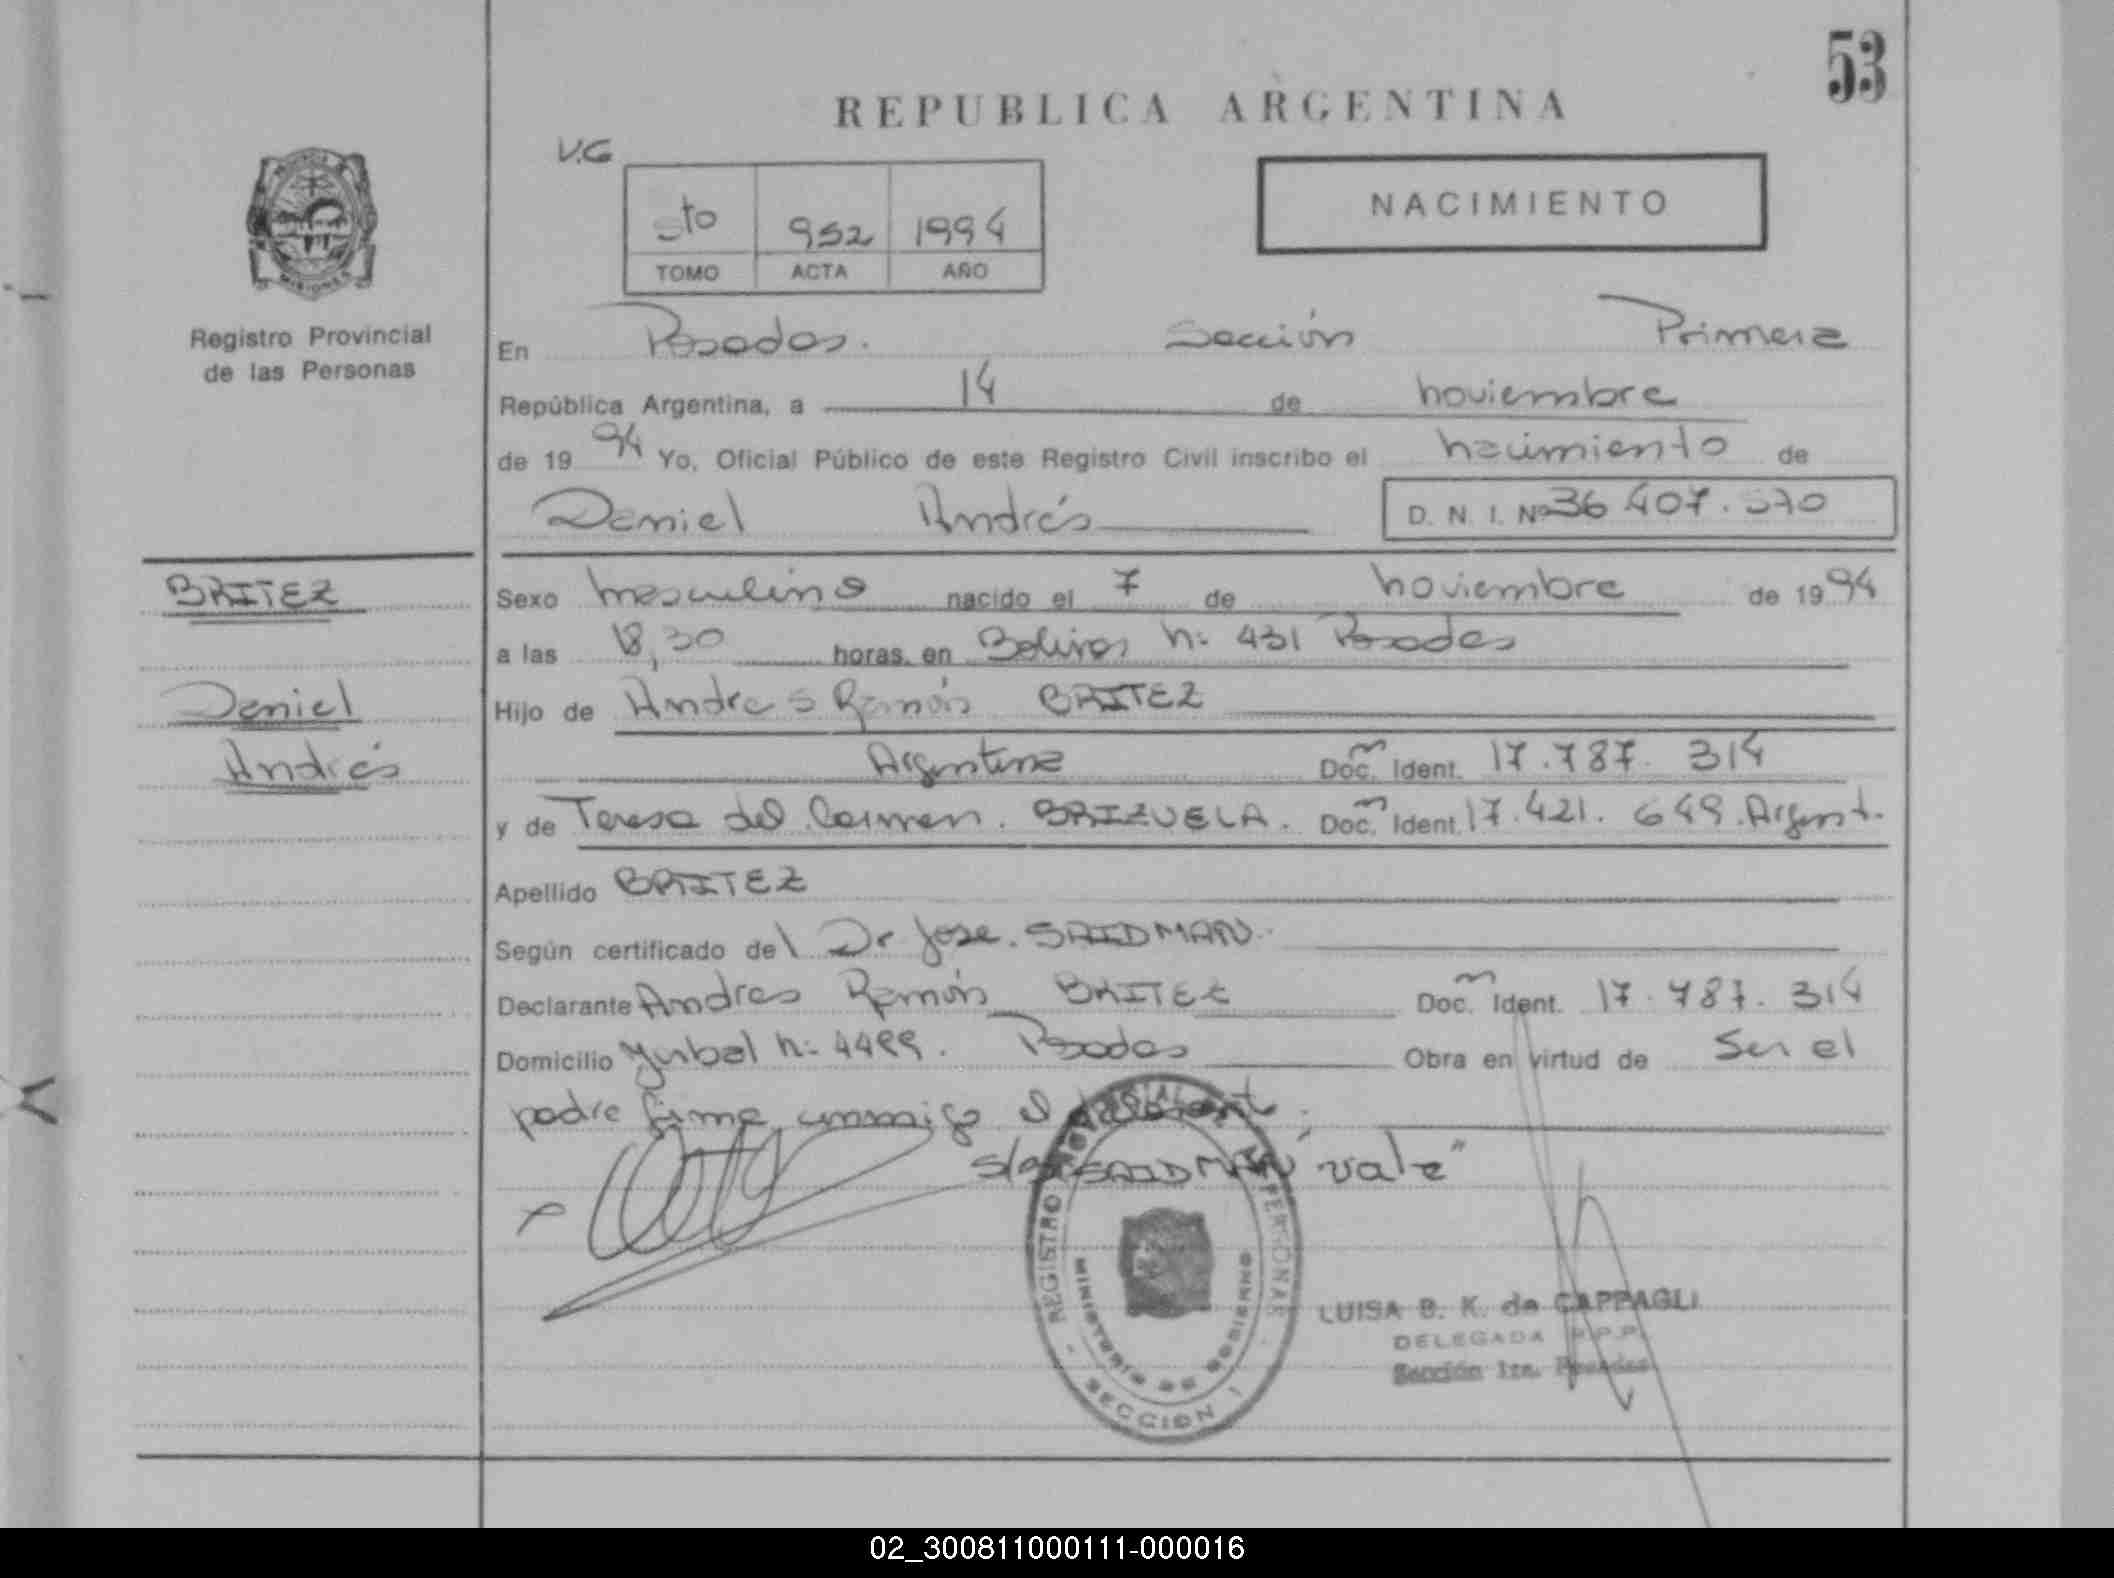 53
REPUBLICA ARGENTINA
V.G
5to 952 1994
TOMO ACTA AÑO
NACIMIENTO
MISIONES
Registro Provincial
de las Personas
En Posadas. Sección Primera
República Argentina, a 14 de noviembre
de 1994 Yo, Oficial Público de este Registro Civil inscribo el nacimiento de
Daniel Andrés D. N. I. Nº 36 407.570
BRITEZ
Daniel
Andrés
Sexo masculino nacido el 7 de noviembre de 1994
a las 18,30 horas, en Bolivar n: 431 Posadas
Hijo de Andres Ramón BRITEZ
Argentina Doc. Ident. 17.787.314
y de Teresa del Carmen. BRIZUELA. Doc. Ident. 17.421.649. Argent.
Apellido BRITEZ
Según certificado del Dr Jose. SAIDMAN.
Declarante Andres Ramón BRITEZ Doc. Ident. 17.787.314
Domicilio Yerbal n: 4499. Posadas Obra en virtud de ser el
padre firma conmigo el
SAIDMAN "vale"
REGISTRO PERSONAS
MINISTERIO DE GOBIERNO
SECCION 1
LUISA B. K. de CAPPAGLI
DELEGADA R.P.P.
Sección 1ra. Posadas
02_300811000111-000016